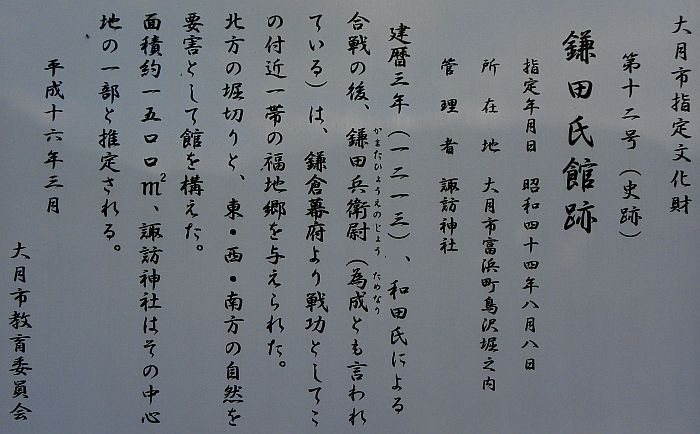 大月市指定文化財
第十二号（史跡）
鎌田氏館跡
指定年月日　昭和四十四年八月八日
所在地　大月市富浜町鳥沢堀之内
管理者　諏訪神社
建暦三年（一二一三）、和田氏による
合戦の後、鎌田兵衛尉（為成とも言われ
かまたひょうえのじょう　ためなり
ている）は、鎌倉幕府より戦功としてこ
の付近一帯の福地郷を与えられた。
北方の堀切りと、東・西・南方の自然を
要害として館を構えた。
面積約一五〇〇㎡、諏訪神社はその中心
地の一部と推定される。
平成十六年三月
大月市教育委員会